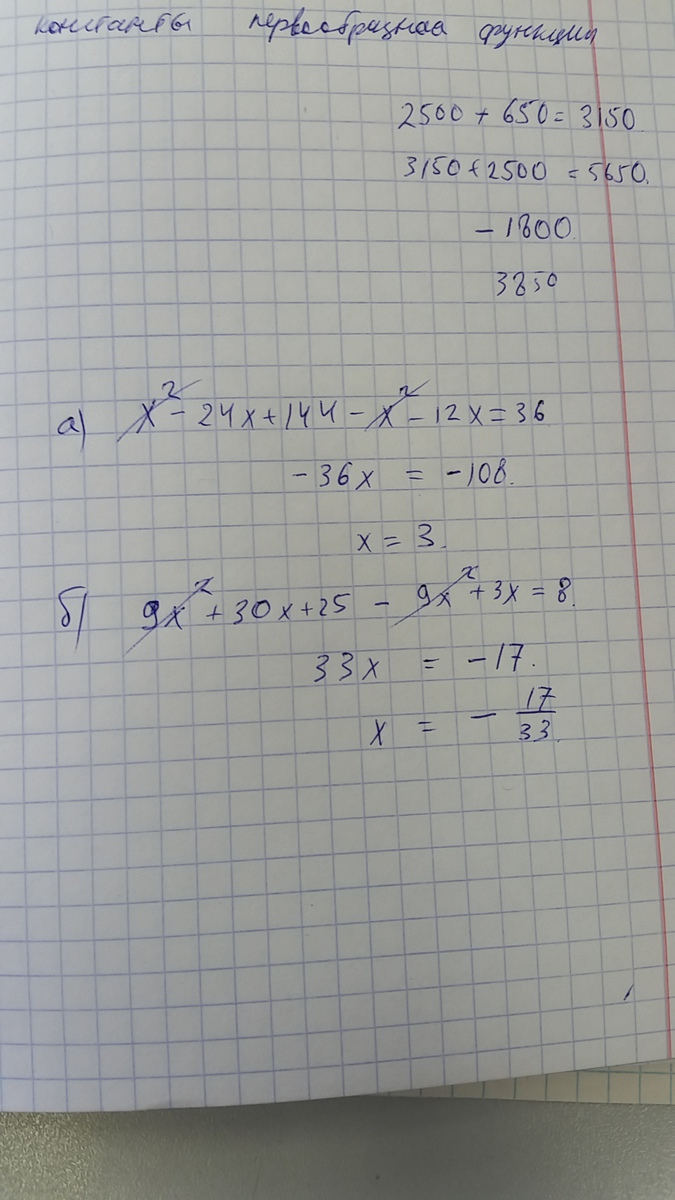 константы первообразная функции
2500 + 650 = 3150.
3150 + 2500 = 5650.
- 1800.
3850
а) x² - 24x + 144 - x² - 12x = 36
- 36x = -108.
x = 3.
б) 9x² + 30x + 25 - 9x² + 3x = 8.
33x = -17.
x = - 17/33.